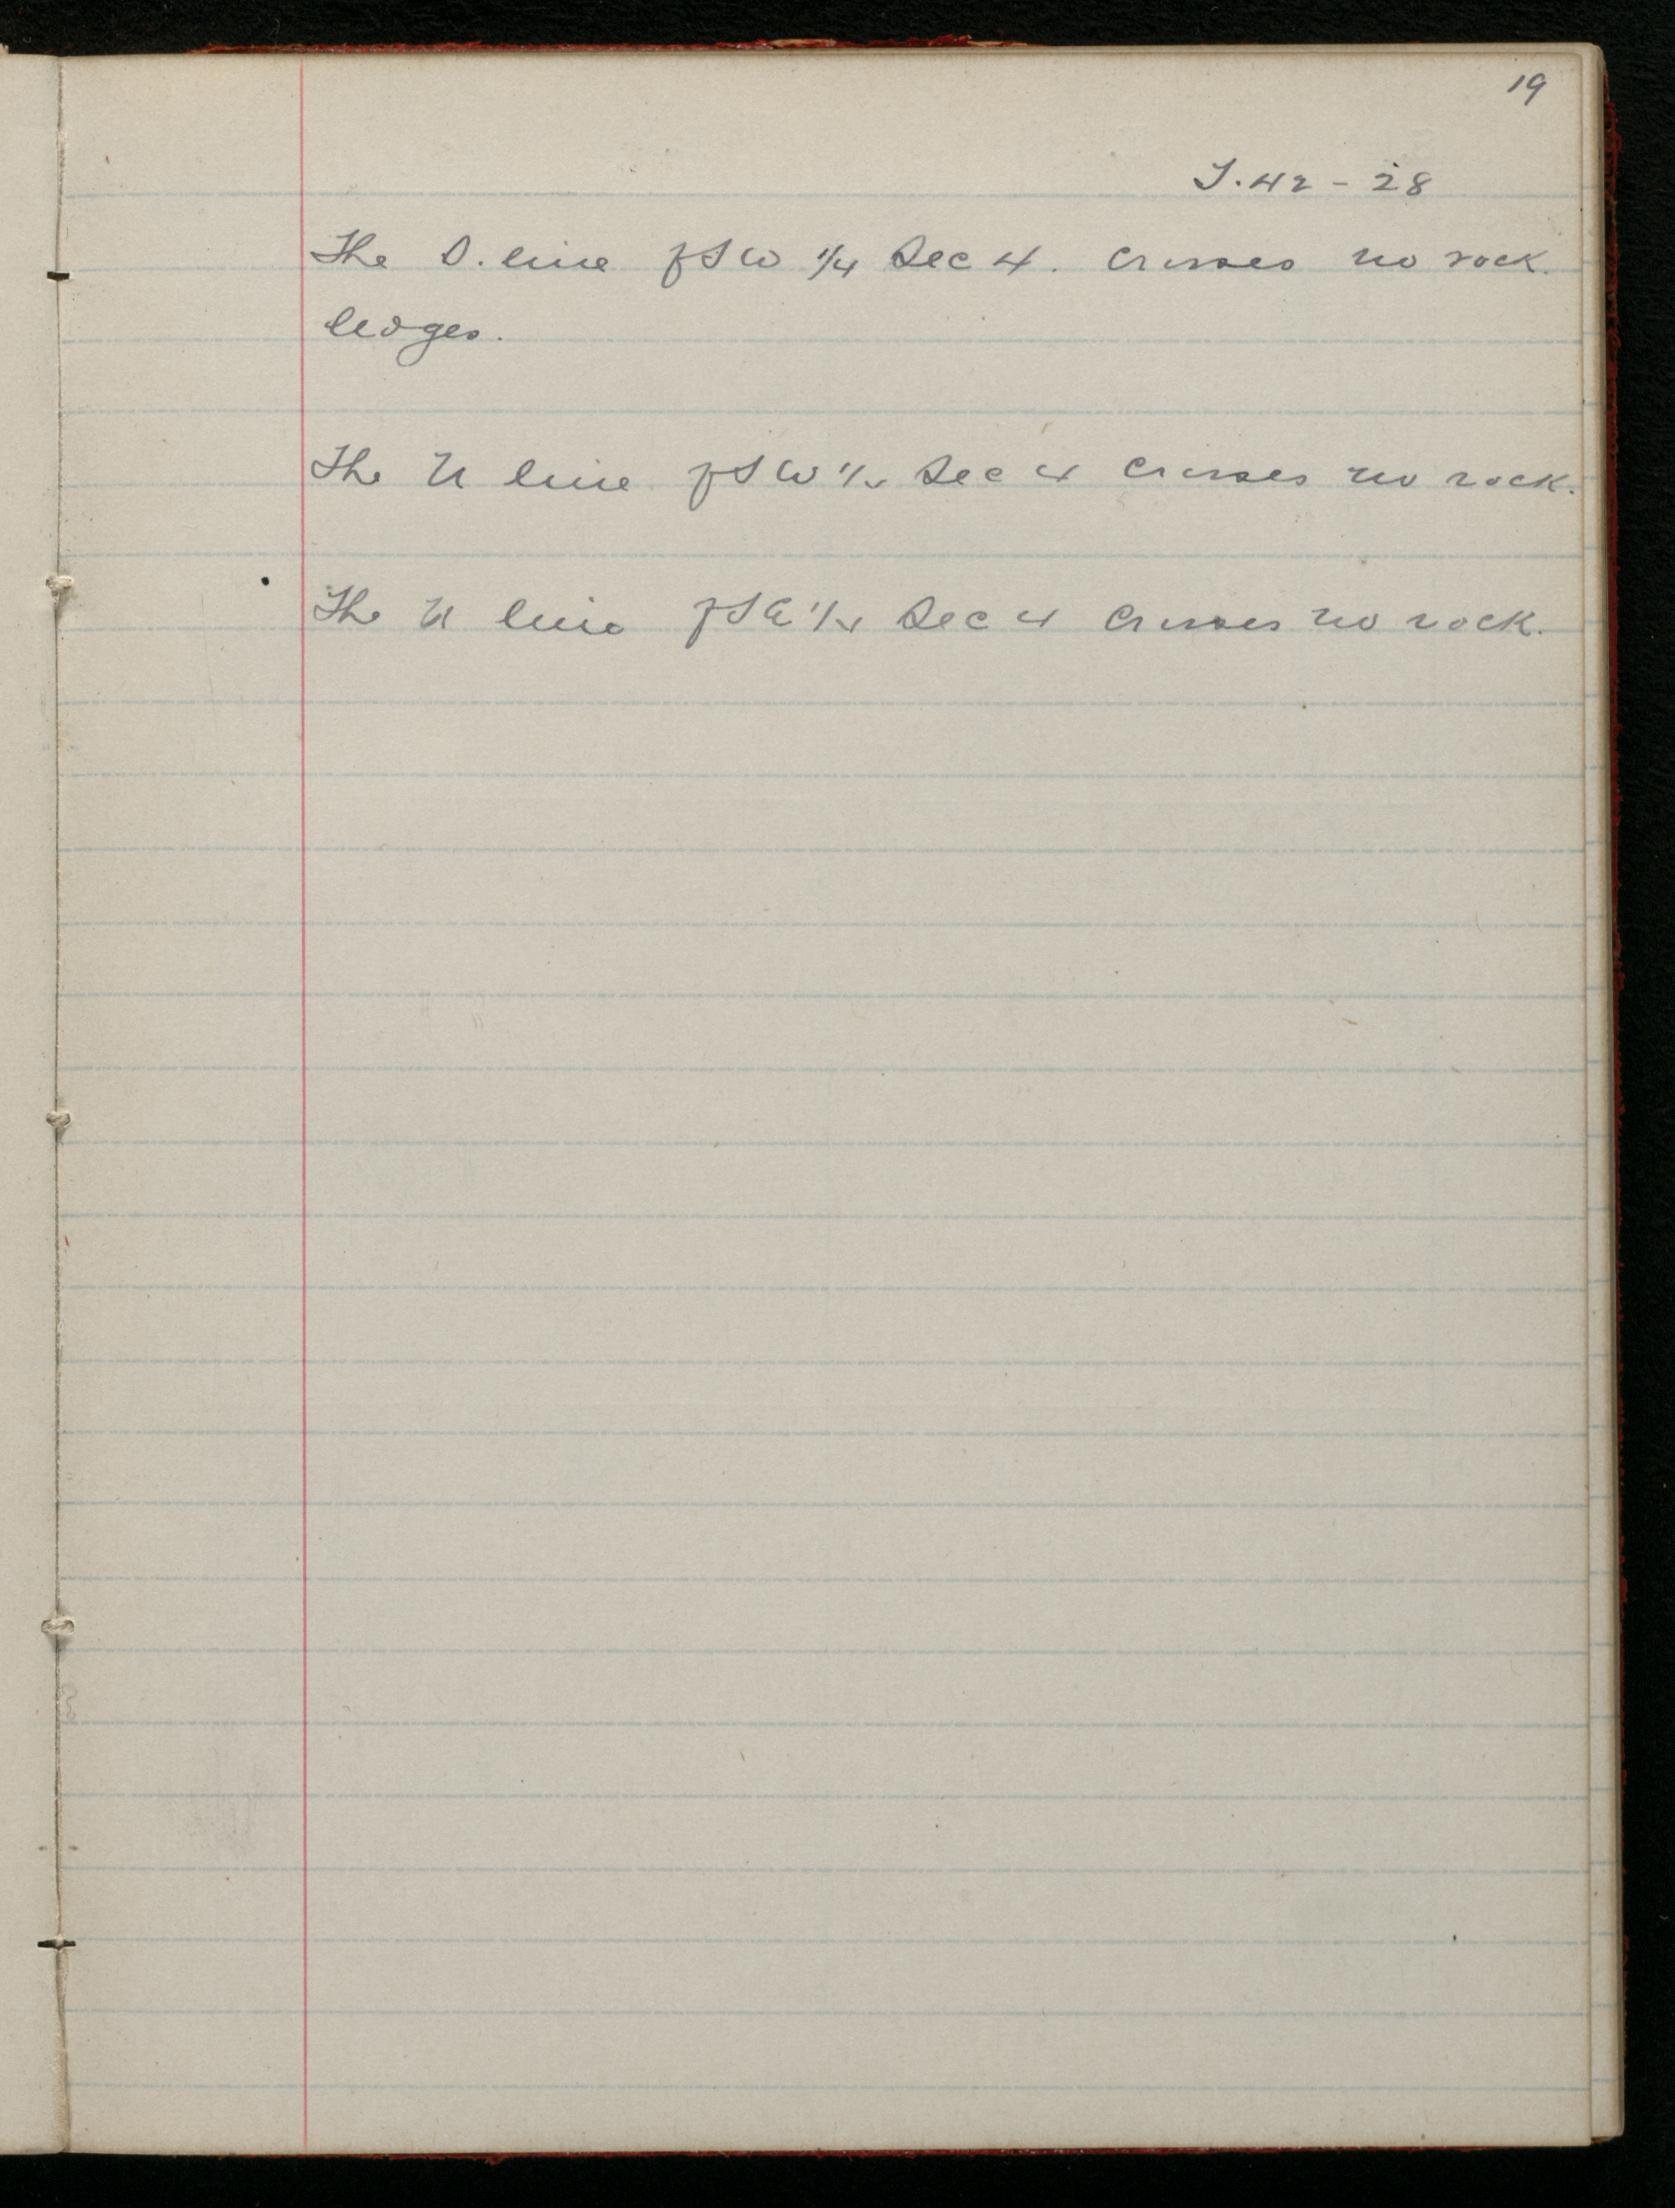 19
T. 42 - 28
The S. line of SW 1/4 Sec 4. crosses no rock
ledges.
The N line of SW 1/4 Sec 4 crosses no rock.
The N line of SE 1/4 Sec 4 crosses no rock.